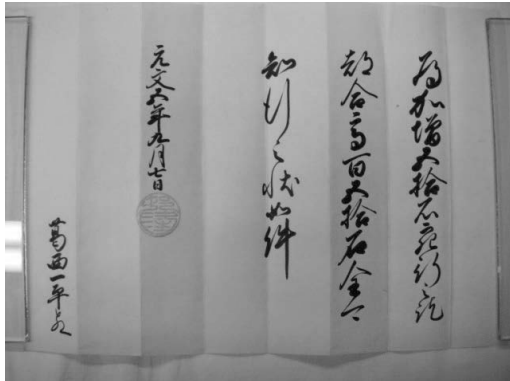 為加増五拾石宛行之訖
都合高百五拾石全可
知行之状如件
元文五年九月七日
葛西一平とのへ